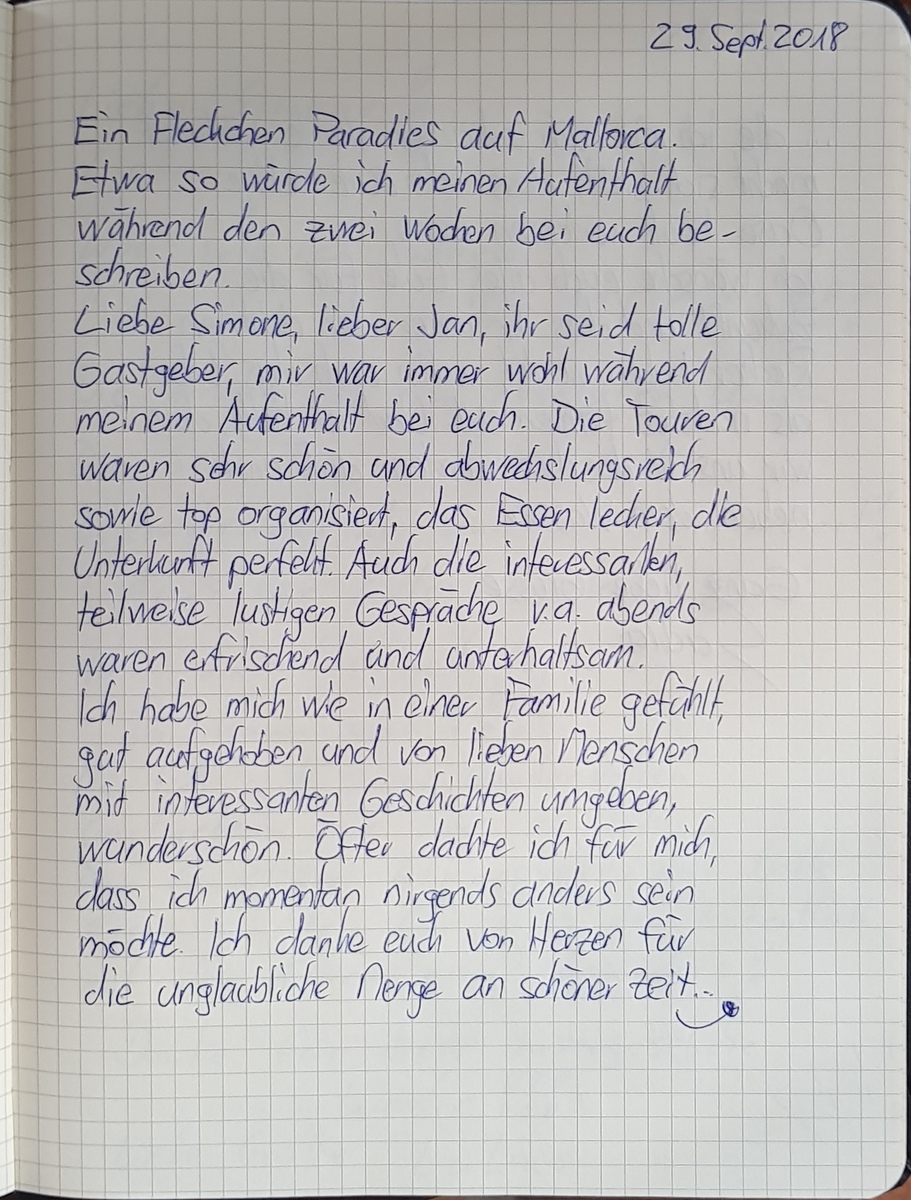 29. Sept. 2018
Ein Fleckchen Paradies auf Mallorca.
Etwa so würde ich meinen Aufenthalt
während den zwei Wochen bei euch be-
schreiben.
Liebe Simone, lieber Jan, ihr seid tolle
Gastgeber, mir war immer wohl während
meinem Aufenthalt bei euch. Die Touren
waren sehr schön und abwechslungsreich
sowie top organisiert, das Essen lecker, die
Unterkunft perfekt. Auch die interessanten,
teilweise lustigen Gespräche v.a. abends
waren erfrischend und unterhaltsam.
Ich habe mich wie in einer Familie gefühlt,
gut aufgehoben und von lieben Menschen
mit interessanten Geschichten umgeben,
wunderschön. Öfter dachte ich für mich,
dass ich momentan nirgends anders sein
möchte. Ich danke euch von Herzen für
die unglaubliche Menge an schöner Zeit...